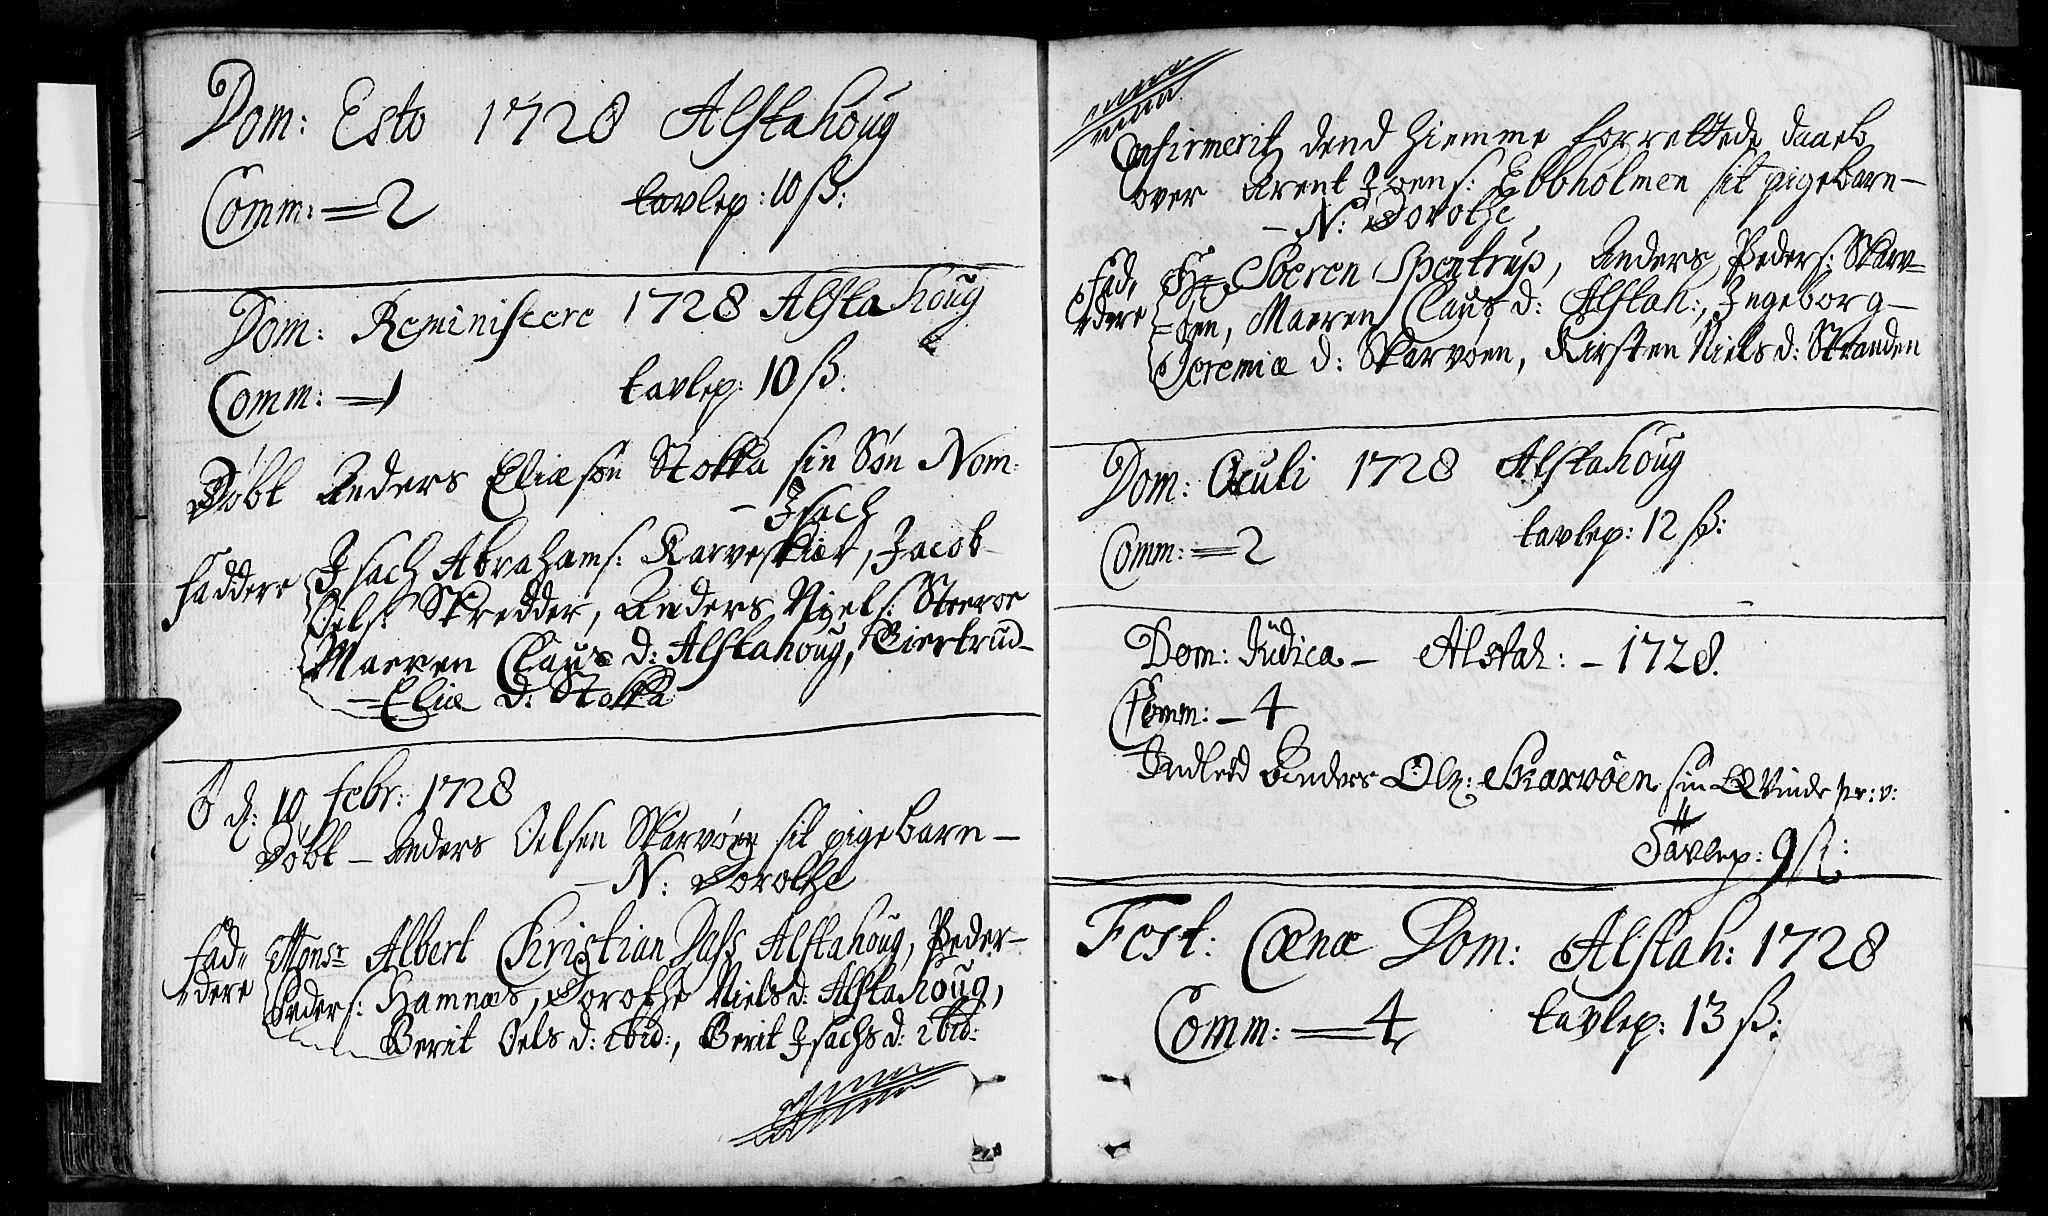 Dom: Esto 1728 Alstahoug
Comm: = 2 tavlep: 10 ß:
Dom: Reminiscere 1728 Alstahoug
Comm: = 1 tavlep: 10 ß:
Døbt Anders Eliæsøn Stokka sin Søn Nom:
- Isach
faddere Isach Abrahams: Karveskiær, Jacob
Oels: Skredder, Anders Niels:
Maeren Claus d: Alstahoug, Giertrud-
= Eliæ d: Stokka
d: 10 febr: 1728
Døbt - Anders Oelsen Skarvøen sit pigebarn -
- N: Dorothe
fad- Monsr Albert Christian Dass Alstahoug, Peder-
dere Peders: Hamnæs, Dorothe Niels d: Alstahoug,
Berit Oels d: ibid:, Berit Isachs d: ibid:
Confirmerit dend hiemme forrettede daab
over Arent Joens: Ebbholmen sit pigebarn -
- N: Dorothe
fad- Hr Søeren Spentrup, Anders Peders: Skarv=
dere =øen, Maeren Claus d: Alstah:, Ingeborg-
Jeremiæ d: Skarvøen, Kirsten Niels d: Stranden
Dom: Oculi 1728 Alstahoug
Comm: = 2 tavlep: 12 ß:
Dom: Judica - Alstah: - 1728.
Comm: - 4
Indleed Anders Ols: Skarvøen sin Qvinde
Tavlep: 9 ß:
Fest: Coenæ Dom: Alstah: 1728
Comm: = 4 tavlep: 13 ß: